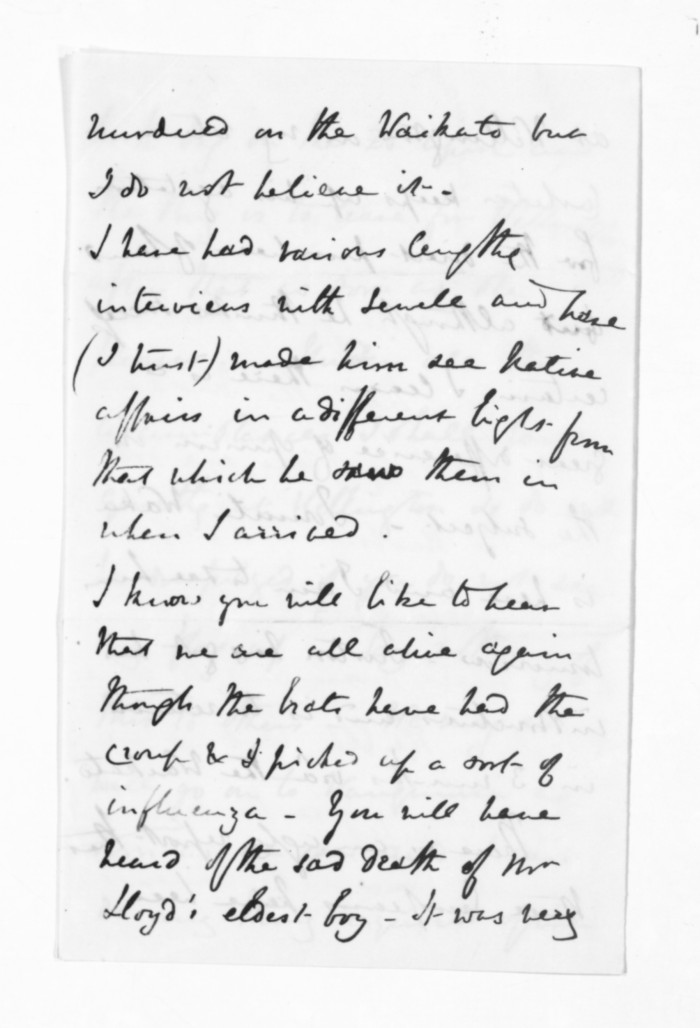 murdered on the Waikato but
I do not believe it -
I have had various lengthy
interviews with Sewell and have
(I trust) made him see Native
affairs in a different light from
that which he saw them in
when I arrived.
I know you will like to hear
that we are all alive again
though the brats have had the
croup & I picked up a sort of
influenza - You will have
heard of the sad death of Mr
Lloyd's eldest boy - It was very